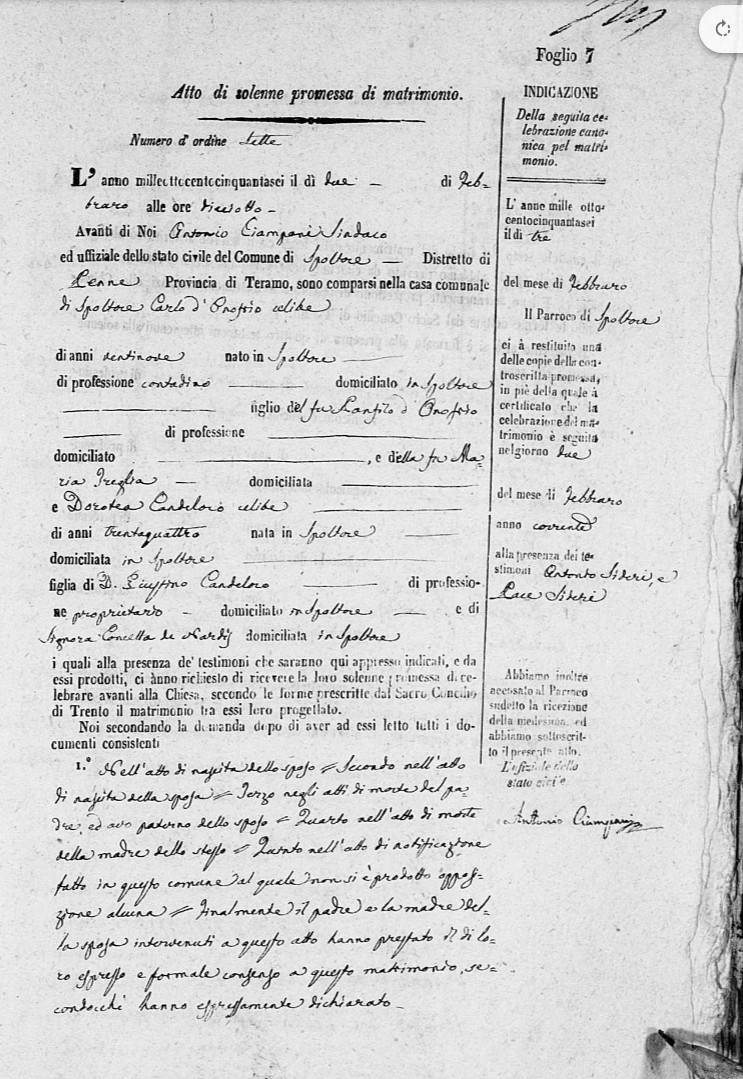 Foglio 7
Atto di solenne promessa di matrimonio.
Numero d'ordine sette
L'anno milleottocentocinquantasei il dì due di Feb=
braro alle ore diciotto
Avanti di Noi Antonio Ciampani Sindaco
ed uffiziale dello stato civile del Comune di Spoltore Distretto di
Penne Provincia di Teramo, sono comparsi nella casa comunale
di Spoltore Carlo d'Onofrio celibe
di anni ventinove nato in Spoltore
di professione contadino domiciliato in Spoltore
figlio del fu Panfilo d'Onofrio
di professione
domiciliato , e della fu Ma=
ria domiciliata
e Dorotea Candeloro celibe
di anni trentaquattro nata in Spoltore
domiciliata in Spoltore
figlia di D. Giustino Candeloro di professio-
ne proprietario domiciliato in Spoltore e di
Signora Concetta de Nardis domiciliata in Spoltore
i quali alla presenza de' testimoni che saranno qui appresso indicati, e da
essi prodotti, ci ànno richiesto di ricevere la loro solenne promessa di ce-
lebrare avanti alla Chiesa, secondo le forme prescritte dal Sacro Concilio
di Trento il matrimonio tra essi loro progettato.
Noi secondando la demanda dopo di aver ad essi letto tutti i do-
cumenti consistenti
1.° Nell'atto di nascita dello sposo = Secondo nell'atto
di nascita della sposa = Terzo negli atti di morte del pa=
dre, ed avo paterno dello sposo = Quarto nell'atto di morte
della madre dello stesso = Quinto nell'atto di notificazione
fatto in questo comune al quale non si è prodotto opposi=
zione alcuna = Finalmente il padre e la madre del=
la sposa intervenuti a questo atto hanno prestato il di lo=
ro espresso e formale consenso a questo matrimonio, se=
condocchè hanno espressamente dichiarato
INDICAZIONE
Della seguita ce-
lebrazione cano-
nica pel matri-
monio.
L'anno mille otto-
centocinquantasei
il dì tre
del mese di Febbraro
Il Parroco di Spoltore
ci à restituito una
delle copie della con-
troscritta promessa,
in piè della quale à
certificato che la
celebrazione del ma-
trimonio è seguita
nel giorno due
del mese di Febbraro
anno corrente
alla presenza dei te-
stimoni Antonio Sideri, e
Pace Sideri
Abbiamo inoltre
accusato al Parroco
sudetto la ricezione
della medesima, ed
abbiamo sottoscrit-
to il presente atto.
L'ufiziale dello
stato civile
Antonio Ciampani